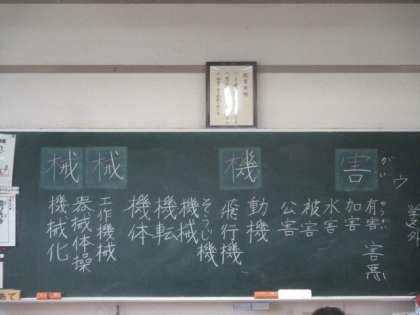 害
がい
ウ
有害
ゆうがい
害悪
加害
水害
被害
公害
機
動機
飛行機
そうじ機
機械
機転
機体
械
械
工作機械
器械体操
機械化